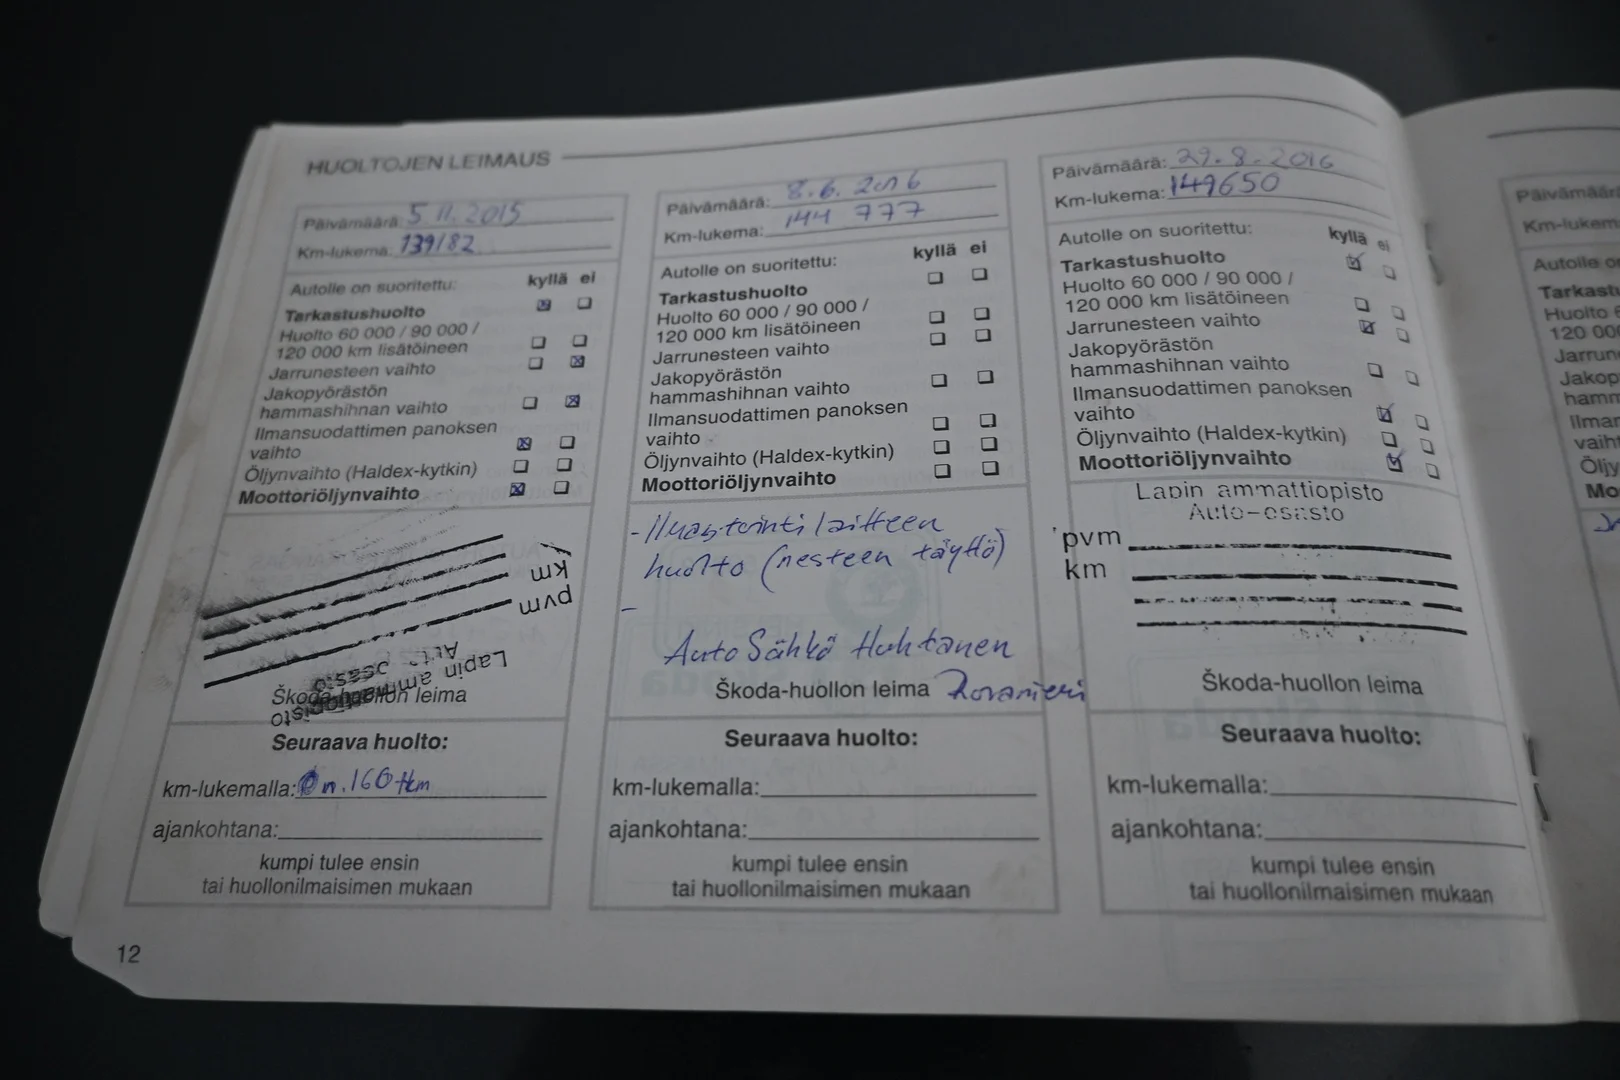 HUOLTOJEN LEIMAUS
Päivämäärä: 5 11. 2015
Km-lukema: 139182
Autolle on suoritettu:
kyllä ei
Tarkastushuolto
Huolto 60 000 / 90 000 /
120 000 km lisätöineen
Jarrunesteen vaihto
Jakopyörästön
hammashihnan vaihto
Ilmansuodattimen panoksen
vaihto
Öljynvaihto (Haldex-kytkin)
Moottoriöljynvaihto
Lapin ammattiopisto
Auto-osasto
pvm
km
Škoda-huollon leima
Seuraava huolto:
km-lukemalla: n. 160 tkm
ajankohtana:
kumpi tulee ensin
tai huollonilmaisimen mukaan
12
Päivämäärä: 8.6. 2016
Km-lukema: 144 777
Autolle on suoritettu:
kyllä ei
Tarkastushuolto
Huolto 60 000 / 90 000 /
120 000 km lisätöineen
Jarrunesteen vaihto
Jakopyörästön
hammashihnan vaihto
Ilmansuodattimen panoksen
vaihto
Öljynvaihto (Haldex-kytkin)
Moottoriöljynvaihto
- Ilmastointi laitteen
huolto (nesteen täyttö)
-
Auto Sähkö Huhtanen
Škoda-huollon leima Rovaniemi
Seuraava huolto:
km-lukemalla:
ajankohtana:
kumpi tulee ensin
tai huollonilmaisimen mukaan
Päivämäärä: 29.8.2016
Km-lukema: 149650
Autolle on suoritettu:
kyllä ei
Tarkastushuolto
Huolto 60 000 / 90 000 /
120 000 km lisätöineen
Jarrunesteen vaihto
Jakopyörästön
hammashihnan vaihto
Ilmansuodattimen panoksen
vaihto
Öljynvaihto (Haldex-kytkin)
Moottoriöljynvaihto
Lapin ammattiopisto
Auto-osasto
pvm
km
Škoda-huollon leima
Seuraava huolto:
km-lukemalla:
ajankohtana:
kumpi tulee ensin
tai huollonilmaisimen mukaan